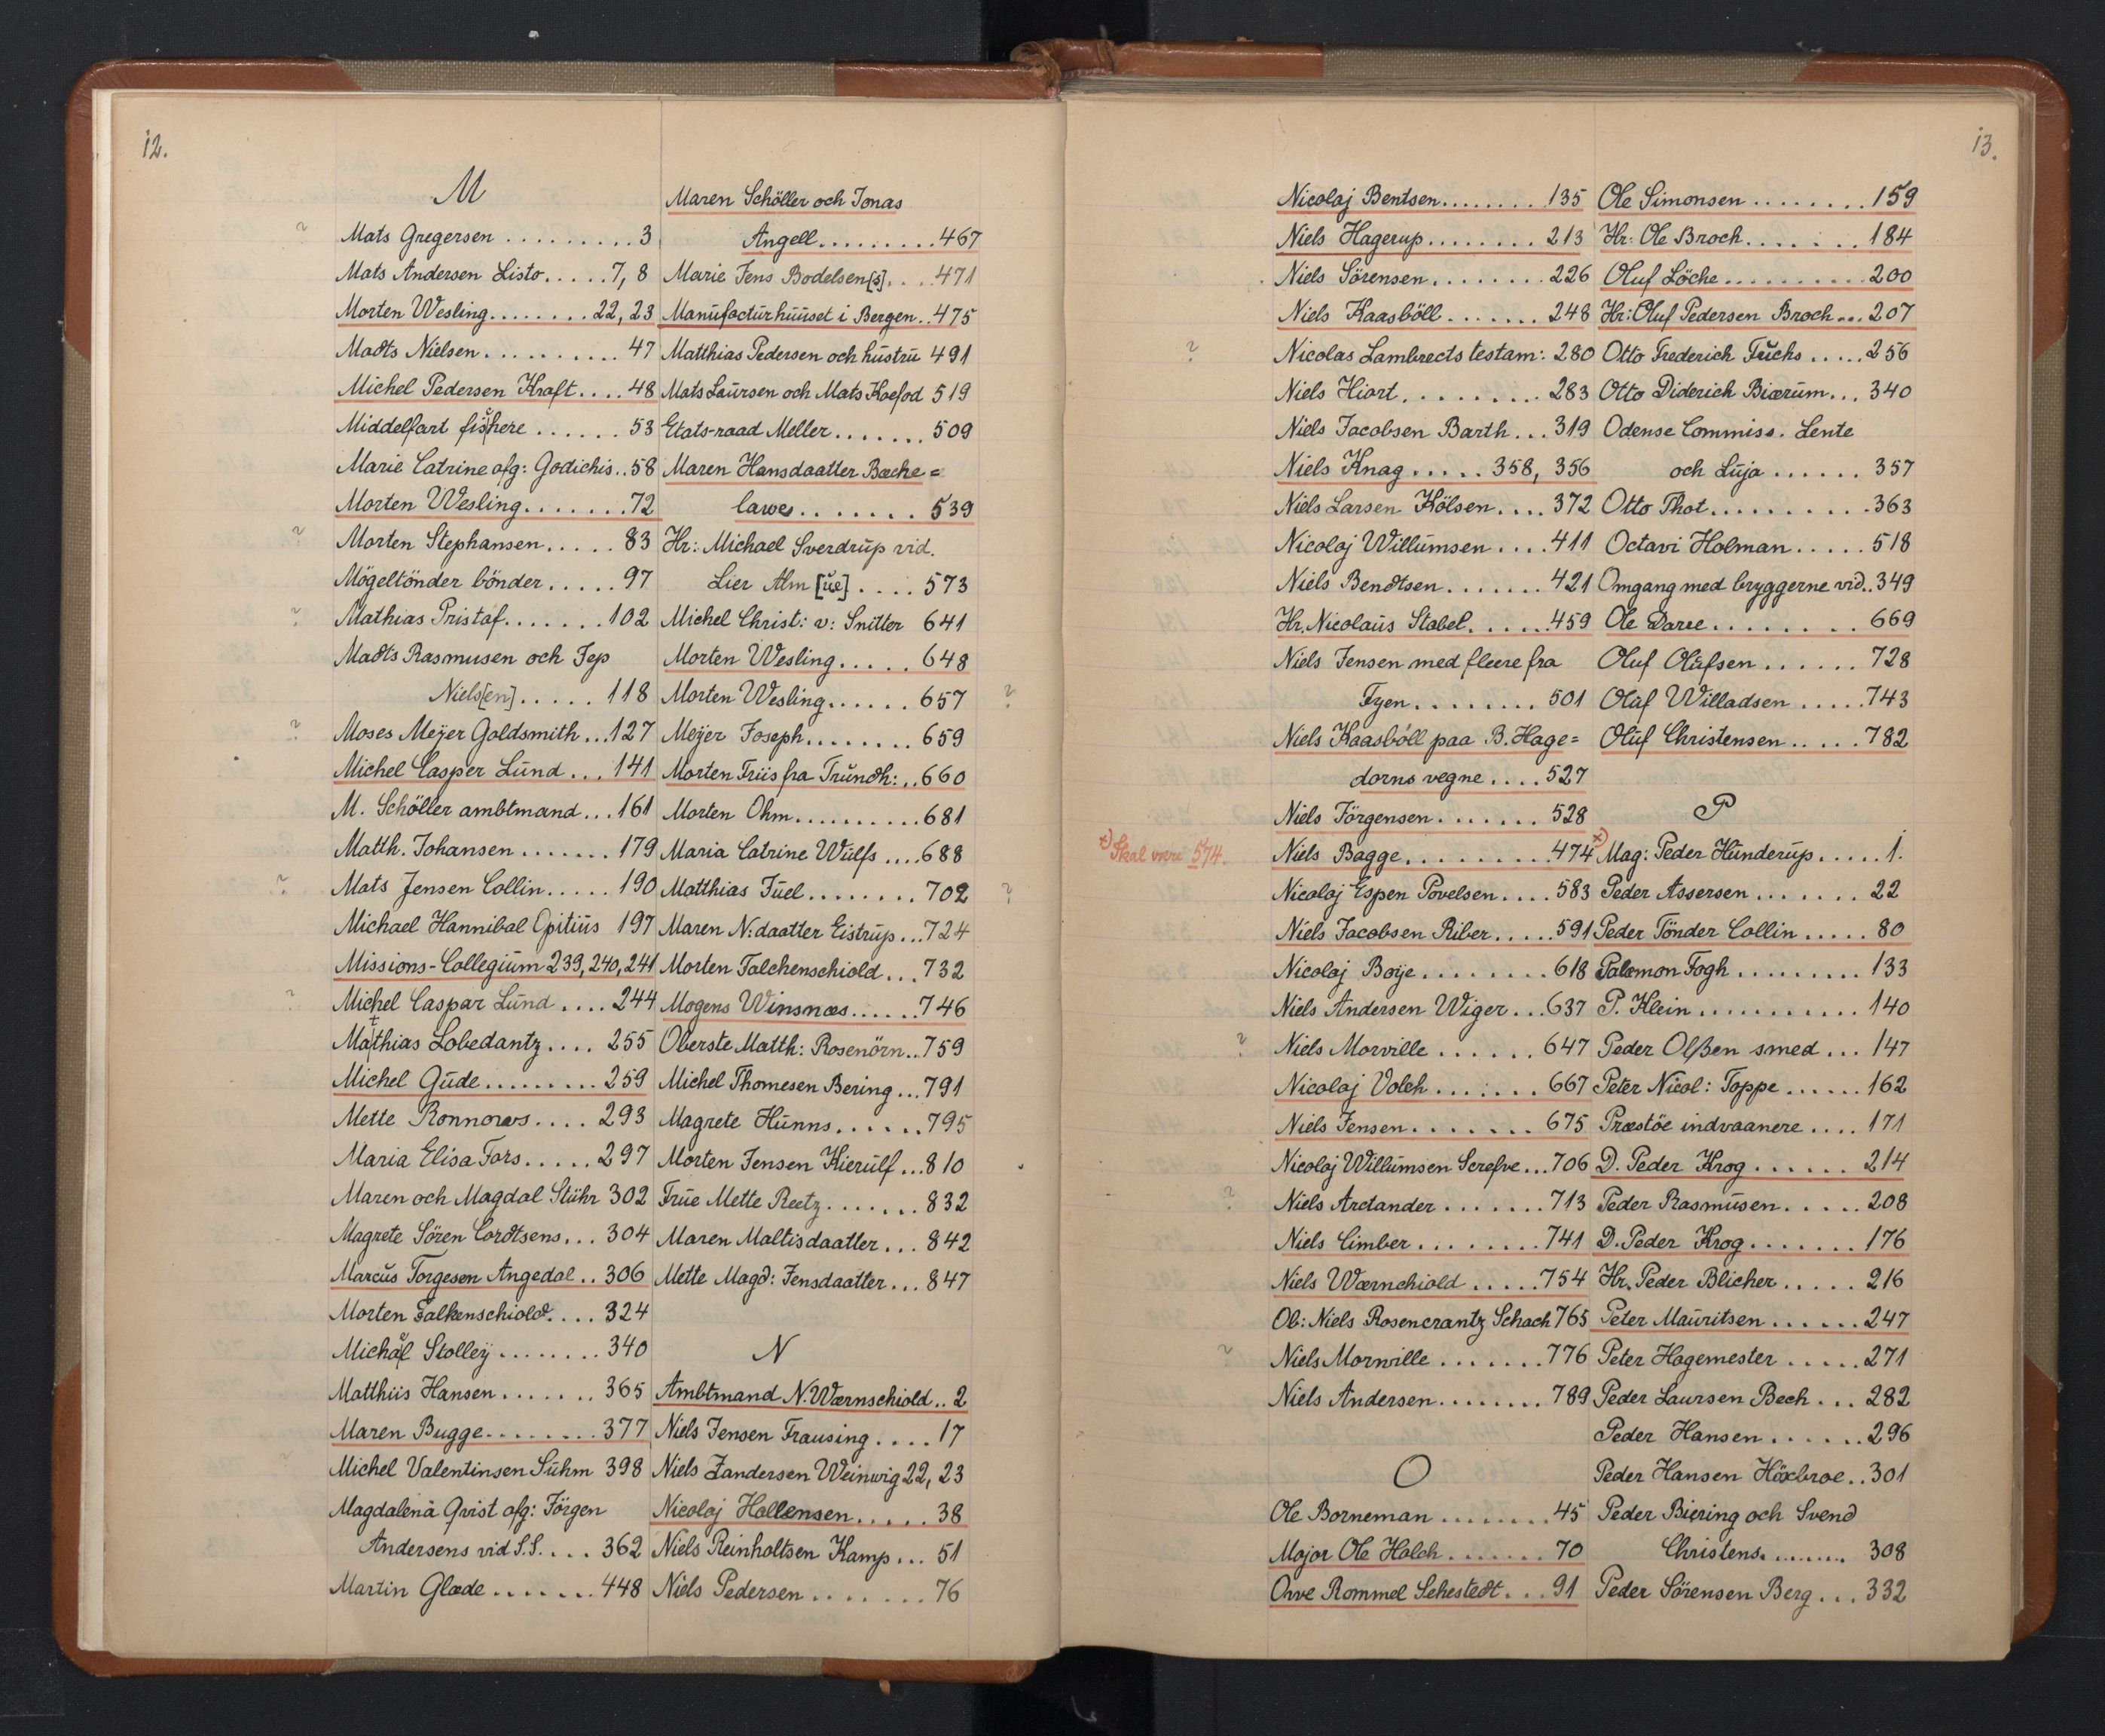 12.
M
? Mats Gregersen .......... 3
Mats Andersen Listo ..... 7, 8
Morten Wesling ........ 22, 23
Madts Nielsen .......... 47
Michel Pedersen Kraft .... 48
Middelfart fischere ...... 53
Marie Catrine afg: Godichis .. 58
Morten Wesling ....... 72
? Morten Stephansen ..... 83
Mögeltönder bönder ..... 97
? Mathias Pristaf ....... 102
Madts Rasmusen och Jep
Niels[en] ..... 118
? Moses Meÿer Goldsmith ... 127
Michel Casper Lund ... 141
M. Schöller ambtmand ... 161
Matth. Johansen ....... 179
? Mats Jensen Collin ..... 190
Michael Hannibal Opitius 197
Missions-Collegium 239, 240, 241
? Michel Caspar Lund .... 244
Matthias Lobedantz .... 255
Michel Gude ......... 259
Mette Ronnows .... 293
Maria Elisa Fors ..... 297
Maren och Magdal Stuhr 302
Magrete Sören Cordtsens ... 304
Marcus Torgesen Angedal .. 306
Morten Falkenschiold .... 324
Michael Stolleÿ ........ 340
Matthiis Hansen ....... 365
Maren Bugge ........ 377
Michel Valentinsen Suhm 398
Magdalena Qvist afg: Jörgen
Andersens vid S.S. ... 362
Martin Glæde ....... 448
Maren Schöller och Jonas
Angell ......... 467
Marie Jens Bodelsen[s] .... 471
Manufacturhuuset i Bergen .. 475
Matthias Pedersen och hustru 491
Mats Laursen och Mats Koefod 519
Etats-raad Meller ....... 509
Maren Hansdaatter Bæche=
lawe ........ 539
Hr: Michael Sverdrup vid.
Lier Alm [ue] .... 573
Michel Christ: v: Snitter 641
Morten Wesling ..... 648
Morten Wesling ...... 657 ?
Meÿer Joseph ........ 659
Morten Friis fra Trundh: .. 660
Morten Ohm .......... 681
Maria Catrine Wulfs .... 688
Matthias Juel ........ 702 ?
Maren N:daatter Eistrup ... 724
Morten Falchenschiold ... 732
Mogens Winsnæs ...... 746
Oberste Matth: Rosenörn .. 759
Michel Thomesen Bering ... 791
Magrete Hunns ...... 795
Morten Jensen Kierulf ... 810
Frue Mette Reetz ....... 832
Maren Maltisdaatter ... 842
Mette Magd: Jensdaatter ... 847
N
Ambtmand N. Wærnschiold .. 2
Niels Jensen Frausing .... 17
Niels Zandersen Weinwig 22, 23
Nicolaj Hallensen ..... 38
Niels Reinholtsen Kamp ... 51
Niels Pedersen ........ 76
13.
Nicolaj Bentsen ........ 135
Niels Hagerup ........ 213
Niels Sörensen ........ 226
Niels Kaasböll ....... 248
? Nicolas Lambrects testam: 280
Niels Hiort .......... 283
Niels Jacobsen Barth ... 319
Niels Knag ..... 358, 356
Niels Larsen Kölsen .... 372
Nicolaj Willumsen .... 411
Niels Bendtsen ....... 421
Hr. Nicolaus Stabel ..... 459
Niels Jensen med fleere fra
Fyen ........ 501
Niels Kaasböll paa B. Hage=
dorns vegne .... 527
Niels Jörgensen ....... 528
+) Skal være 574.
Niels Bagge ......... 474 +)
Nicolaj Espen Povelsen .... 583
Niels Jacobsen Riber ..... 591
Nicolaj Boÿe ........ 618
Niels Andersen Wiger ... 637
? Niels Morville ...... 647
Nicolaj Volch ....... 667
Niels Jensen ....... 675
Nicolaj Willumsen Screfve ... 706
? Niels Arctander ....... 713
Niels Cimber ........ 741
Niels Wærnchiold ..... 754
Ob: Niels Rosencrantz Schach 765
? Niels Morwille ....... 776
Niels Andersen ........ 789
O
Ole Borneman ........ 45
Major Ole Holch ....... 70
Owe Rommel Sehestedt ... 91
Ole Simonsen ........ 159
Hr: Ole Broch ....... 184
Oluf Löche .......... 200
Hr: Oluf Pedersen Broch ... 207
Otto Frederich Fuchs ..... 256
Otto Diderich Biærum ... 340
Odense Commiss. Lente
och Luja ...... 357
Otto Thot .......... 363
Octavi Holman ..... 518
Omgang med bryggerne vid .. 349
Ole Daree ........ 669
Oluf Olufsen ...... 728
Oluf Willadsen ..... 743
Oluf Christensen ..... 782
P
Mag: Peder Hunderup ..... 1.
Peder Assersen ....... 22
Peder Tönder Collin ..... 80
Palemon Fogh ......... 133
P. Klein ........... 140
Peder Olßen smed ... 147
Peter Nicol: Toppe ...... 162
Præstöe indvaanere .... 171
D. Peder Krog ...... 214
Peder Rasmusen ..... 208
D. Peder Krog ....... 176
Hr. Peder Blicher ..... 216
Peter Mauritsen ...... 247
Peter Hagemester ..... 271
Peder Laursen Bech ... 282
Peder Hansen ...... 296
Peder Hansen Höxbroe .. 301
Peder Biering och Svend
Christens. ........ 308
Peder Sörensen Berg ... 332